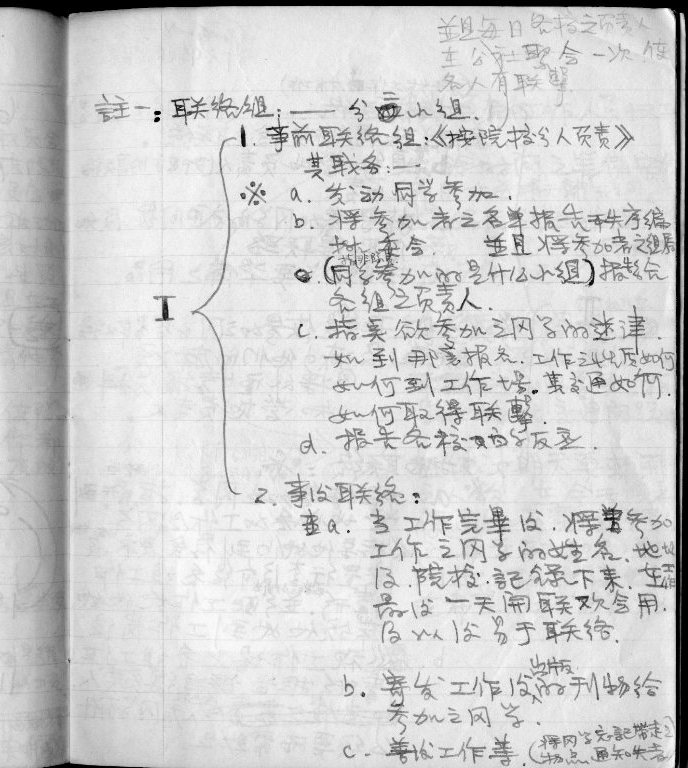 並且每日各校之负责人
主公社聚会一次 使
各人有联擊
註一：联络组：—— 分二小组.
1. 事前联络组：《按院校分人负责》
其职务：—
※ a. 发动同学参加.
b. 将参加者之名单报告秩序编
排委会. 並且将参加者之组
(同学参加的是什么小组) 报告给
各组之负责人.
I
c. 指奌欲参加之同学的迷津.
如到那裏报名. 工作之性质如何
如何到工作場. 其交通如何.
如何取得联擊.
d. 报告各校同学反应.
2. 事後联络：
a. 当工作完畢後. 将参加
工作之同学的姓名. 地址
及院校. 記錄下来. 在工作
最後一天開联欢会用.
及以後易于联络.
b. 寄发工作後出版的刊物给
参加之同学.
c. 善後工作等. (将同学忘記带走之
物点通知失者